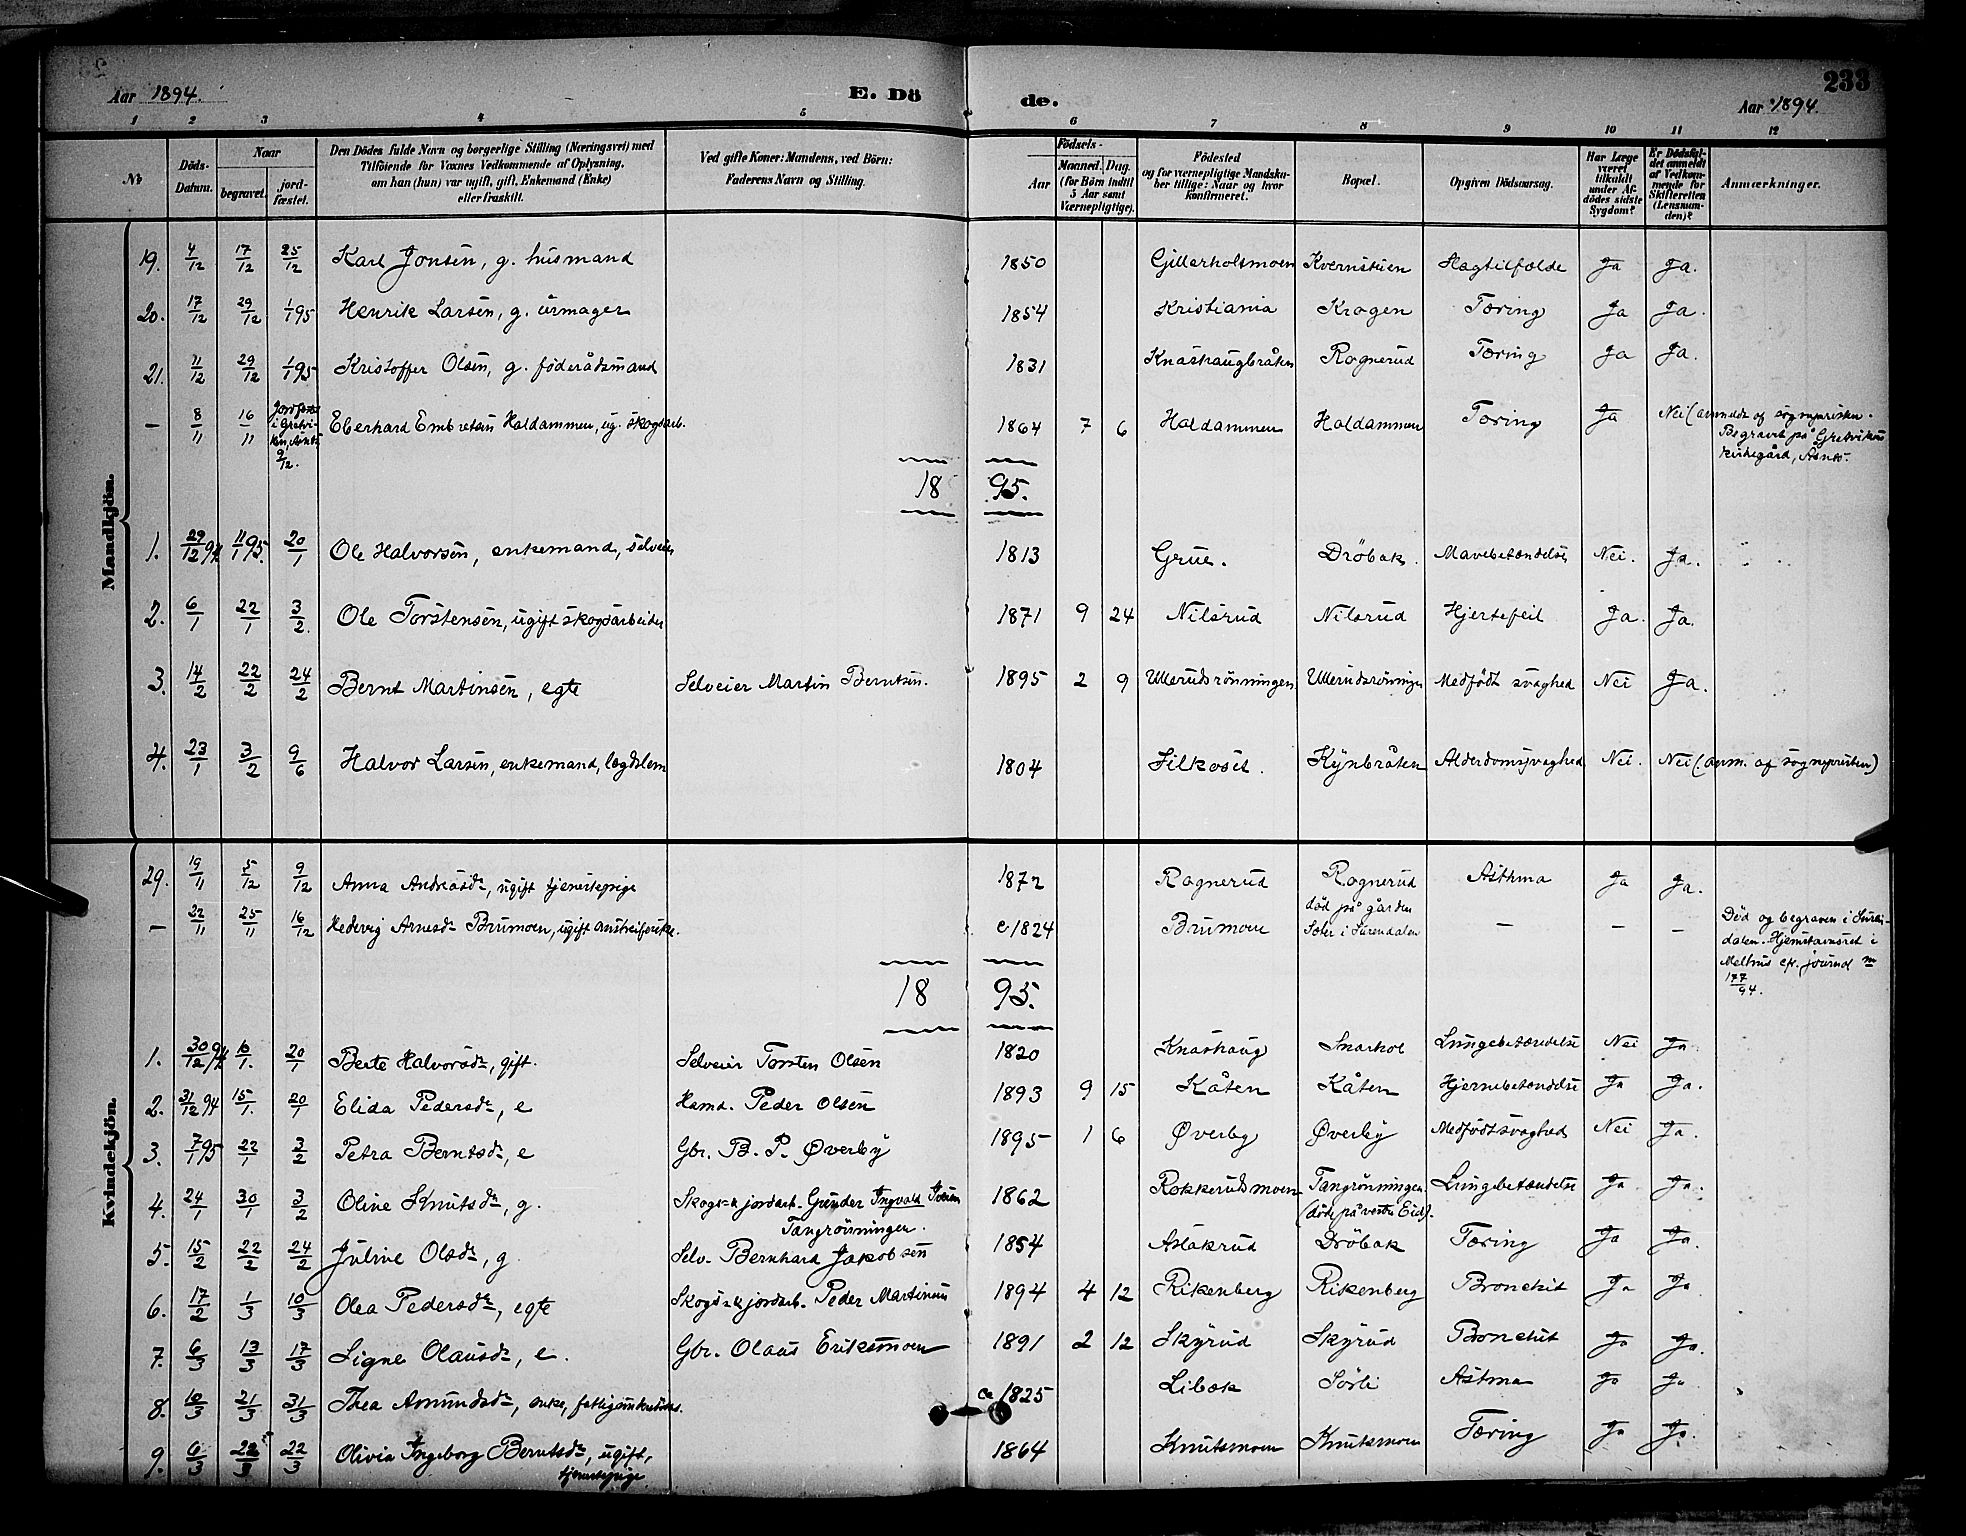 233
Aar 1894. E. Dö de. Aar 1894.
1 2 3 4 5 6 7 8 9 10 11 12
№ Döds-Datum. Naar begravet. jord-fæstet. Den Dödes fulde Navn og borgerlige Stilling (Næringsvei) med Tilföiende for Voxnes Vedkommende af Oplysning, om han (hun) var ugift, gift, Enkemand (Enke) eller fraskilt. Ved gifte Koner: Mandens, ved Börn: Faderens Navn og Stilling. Födsels- Aar Maaned. Dag. (for Börn indtil 5 Aar samt Værnepligtige). Födested og for værnepligtige Mandskaber tillige: Naar og hvor konfirmeret. Bopæl. Opgiven Dödsaarsag. Har Læge været tilkaldt under Afdödes sidste Sygdom? Er Dödsfaldet anmeldt af Vedkommende for Skifteretten (Lensmanden)? Anmærkninger.
Mandkjön.
19. 4/12 17/12 25/12 Karl Jonsen, g. husmand 1850 Gillerholsmoen Kvernstuen Slagtilfælde Ja Ja.
20. 17/12 29/12 1/1 95 Henrik Larsen, g. urmager 1854 Kristiania Krogen Tæring Ja Ja.
21. 11/12 29/12 1/1 95 Kristoffer Olsen, g. föderådsmand 1831 Knashaugbråten Rognerud Tæring Ja Ja.
— 8/11 16/11 9/12. Eberhard Embretsen Haldammen, ug. skogsarb. 1864 7 6 Haldammen Haldammen Tæring Ja Nei (anmeldt af sognepresten.
Begravet på
kirkegård,
18 95.
1. 29/12 94 11/1 95. 20/1 Ole Halvorsen, enkemand, selveier 1813 Grue. Dröbak. Mavebetændelse Nei. Ja.
2. 6/1 22/1 3/2. Ole Torstensen, ugift skogsarbeider 1871 9 24 Nilsrud Nilsrud Hjertefeil Ja. Ja.
3. 14/2 22/2 24/2 Bernt Martinsen, egte Selveier Martin Berntsen. 1895 2 9 Ullerudsrönningen Ullerudsrönningen Medfödt svaghed Nei Ja.
4. 23/1 3/2 9/6 Halvor Larsen, enkemand, lægdslem 1804 Silkoset. Kynbråten Alderdomssvaghed Nei. Nei (anm. af sognepresten)
Kvindekjön.
29. 19/11 5/12 9/12 Anna Andreasdr, ugift tjenestepige 1872 Rognerud Rognerud Asthma Ja Ja.
— 22/11 25/11 16/12 Hedevig Arnesdr Brumoen, ugift c 1824 Brumoen död på gården
i Surendalen — — — Död og begraven i Suren-
dalen. Hjemstavnsret i
cfr. journal nr
177/94.
18 95.
1. 30/12 94 10/1. 20/1 Berte Halvorsdr, gift. Selveier Torsten Olsen 1820 Knashaug Snarhol Lungebetændelse Nei Ja
2. 31/12 94 15/1. 20/1 Elida Pedersdr, e Hsmd. Peder Olsen 1893 9 15 Kåten Kåten Hjernebetændelse Ja Ja.
3. 7/1 95 22/1 3/2 Petra Berntsdr, e Gbr. B. P. Øverby 1895 1 6 Øverby Øverby Medfödt svaghed Nei Ja.
4. 24/1 30/1 3/2 Oline Knutsdr, g. Skogs- & jordarb. Gunder Ingvald Iversen 1862 Rokkerudsmoen Tangrönningen Lungebetændelse Ja Ja.
Tangrönningen. (död på vestre Eid).
5. 15/2 22/2 24/2 Juline Olsdr, g. Selv. Bernhard Jakobsen 1854 Aslakrud Dröbak Tæring Ja Ja.
6. 17/2 1/3 10/3 Olea Pedersdr, egte Skogs- & jordarb. Peder Martinsen 1894 4 12 Rikenberg Rikenberg Bronchit Ja Ja
7. 6/3 13/3 17/3 Signe Olausdr, e. Gbr. Olaus Eriksmoen 1891 2 12 Skyrud Skyrud Bronchit Ja Ja.
8. 10/3 21/3 31/3 Thea Amundsdr, enke, ca 1825 Libæk Sörli Astma Ja Ja
9. 6/3 22/3 22/3 Olivia Ingeborg Berntsdr, ugift, 1864 Knutsmoen Knutsmoen Tæring Ja Ja.
tjenestepige